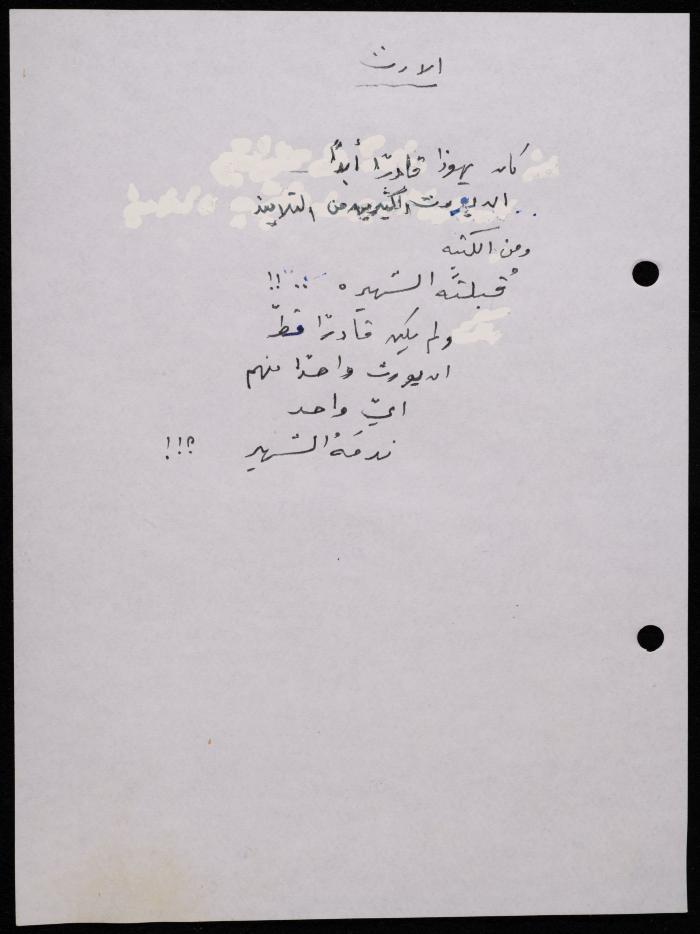 الارث
كان يهوذا قادرًا أبدًا
ان يورث الكثيرين من التلاميذ
ومن الكتبه
قُبلتَه الشهيره ..... !!
ولم يكن قادرًا قطّ
ان يورث واحدًا منهم
ايّ واحد
ندمَهُ الشهير ؟!!